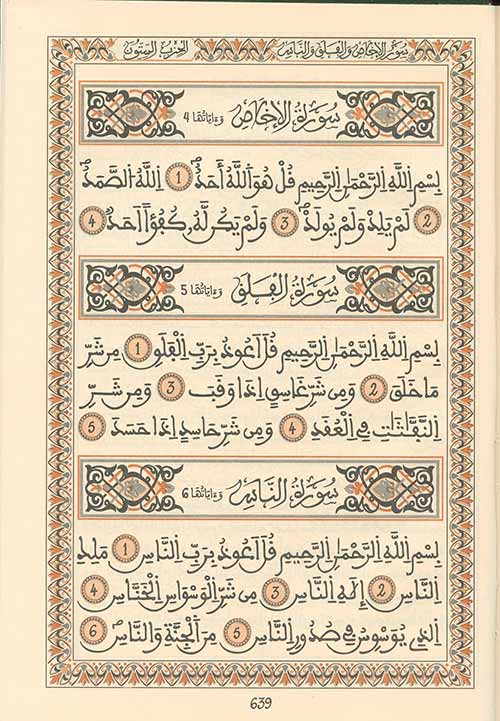 سورة الإخلاص والفلق والناس الحزب الستون
سورة الإخلاص وءاياتها 4
بِسْمِ اِللَّهِ اِلرَّحْمَٰنِ اِلرَّحِيمِ قُلْ هُوَ اَللَّهُ أَحَدٌ 1 اِللَّهُ اُلصَّمَدُ
2 لَمْ يَلِدْ وَلَمْ يُولَدْ 3 وَلَمْ يَكُن لَّهُۥ كُفُؤاً اَحَدٌ 4
سورة الفلق وءاياتها 5
بِسْمِ اِللَّهِ اِلرَّحْمَٰنِ اِلرَّحِيمِ قُلَ اَعُوذُ بِرَبِّ اِلْفَلَقِ 1 مِن شَرِّ
مَا خَلَقَ 2 وَمِن شَرِّ غَاسِقٍ اِذَا وَقَبَ 3 وَمِن شَرِّ
اِلنَّفَّٰثَٰتِ فِي اِلْعُقَدِ 4 وَمِن شَرِّ حَاسِدٍ اِذَا حَسَدَ 5
سورة الناس وءاياتها 6
بِسْمِ اِللَّهِ اِلرَّحْمَٰنِ اِلرَّحِيمِ قُلَ اَعُوذُ بِرَبِّ اِلنَّاسِ 1 مَلِكِ
اِلنَّاسِ 2 إِلَٰهِ اِلنَّاسِ 3 مِن شَرِّ اِلْوَسْوَاسِ اِلْخَنَّاسِ 4
اِلذِي يُوَسْوِسُ فِي صُدُورِ اِلنَّاسِ 5 مِنَ اَلْجِنَّةِ وَالنَّاسِ 6
639